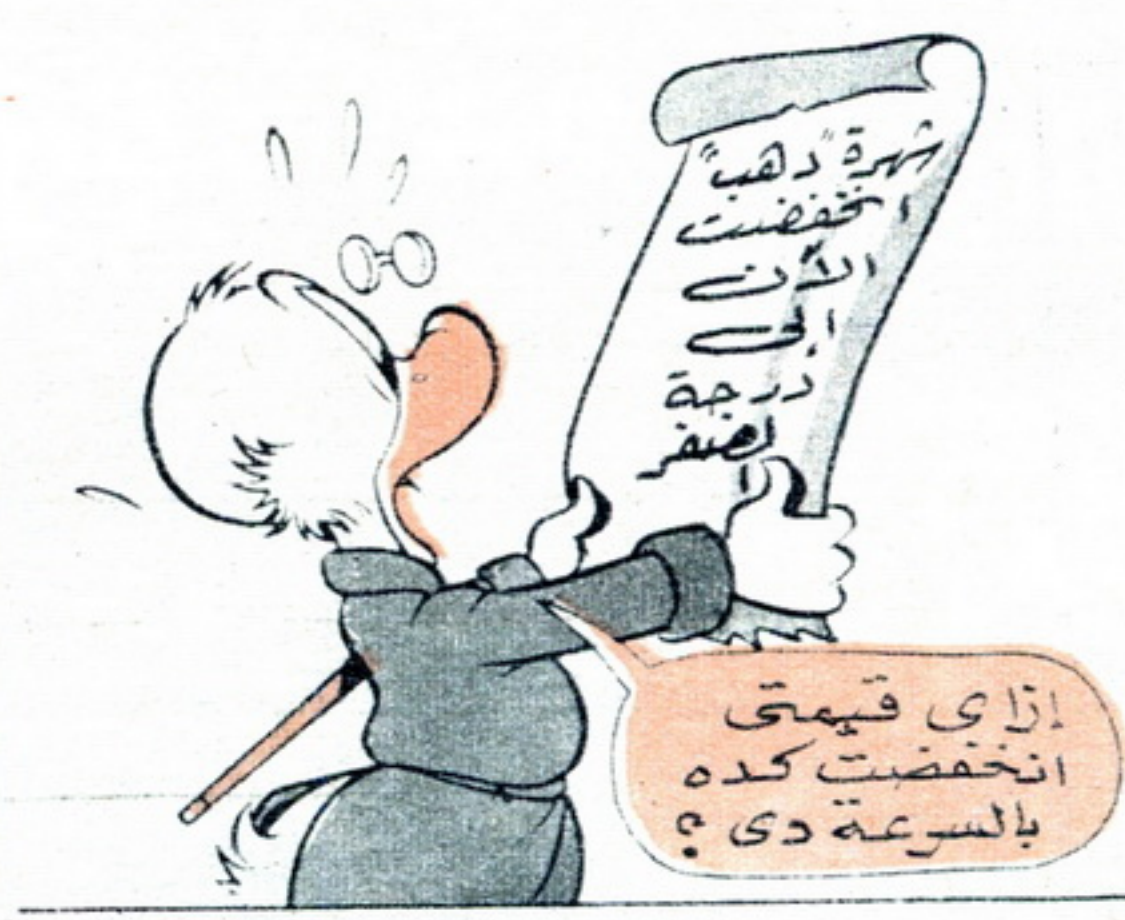 شهرة "دهب"
انخفضت
الآن
الى
درجة
لصفر
إزاى قيمتى
انخفضت كده
بالسرعة دى ؟